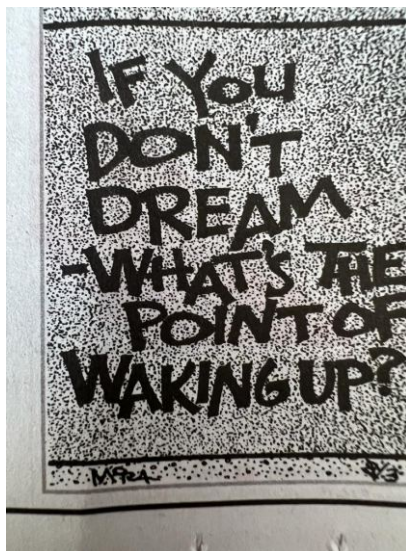 IF YOU
DON'T
DREAM
-WHAT'S THE
POINT OF
WAKING UP?